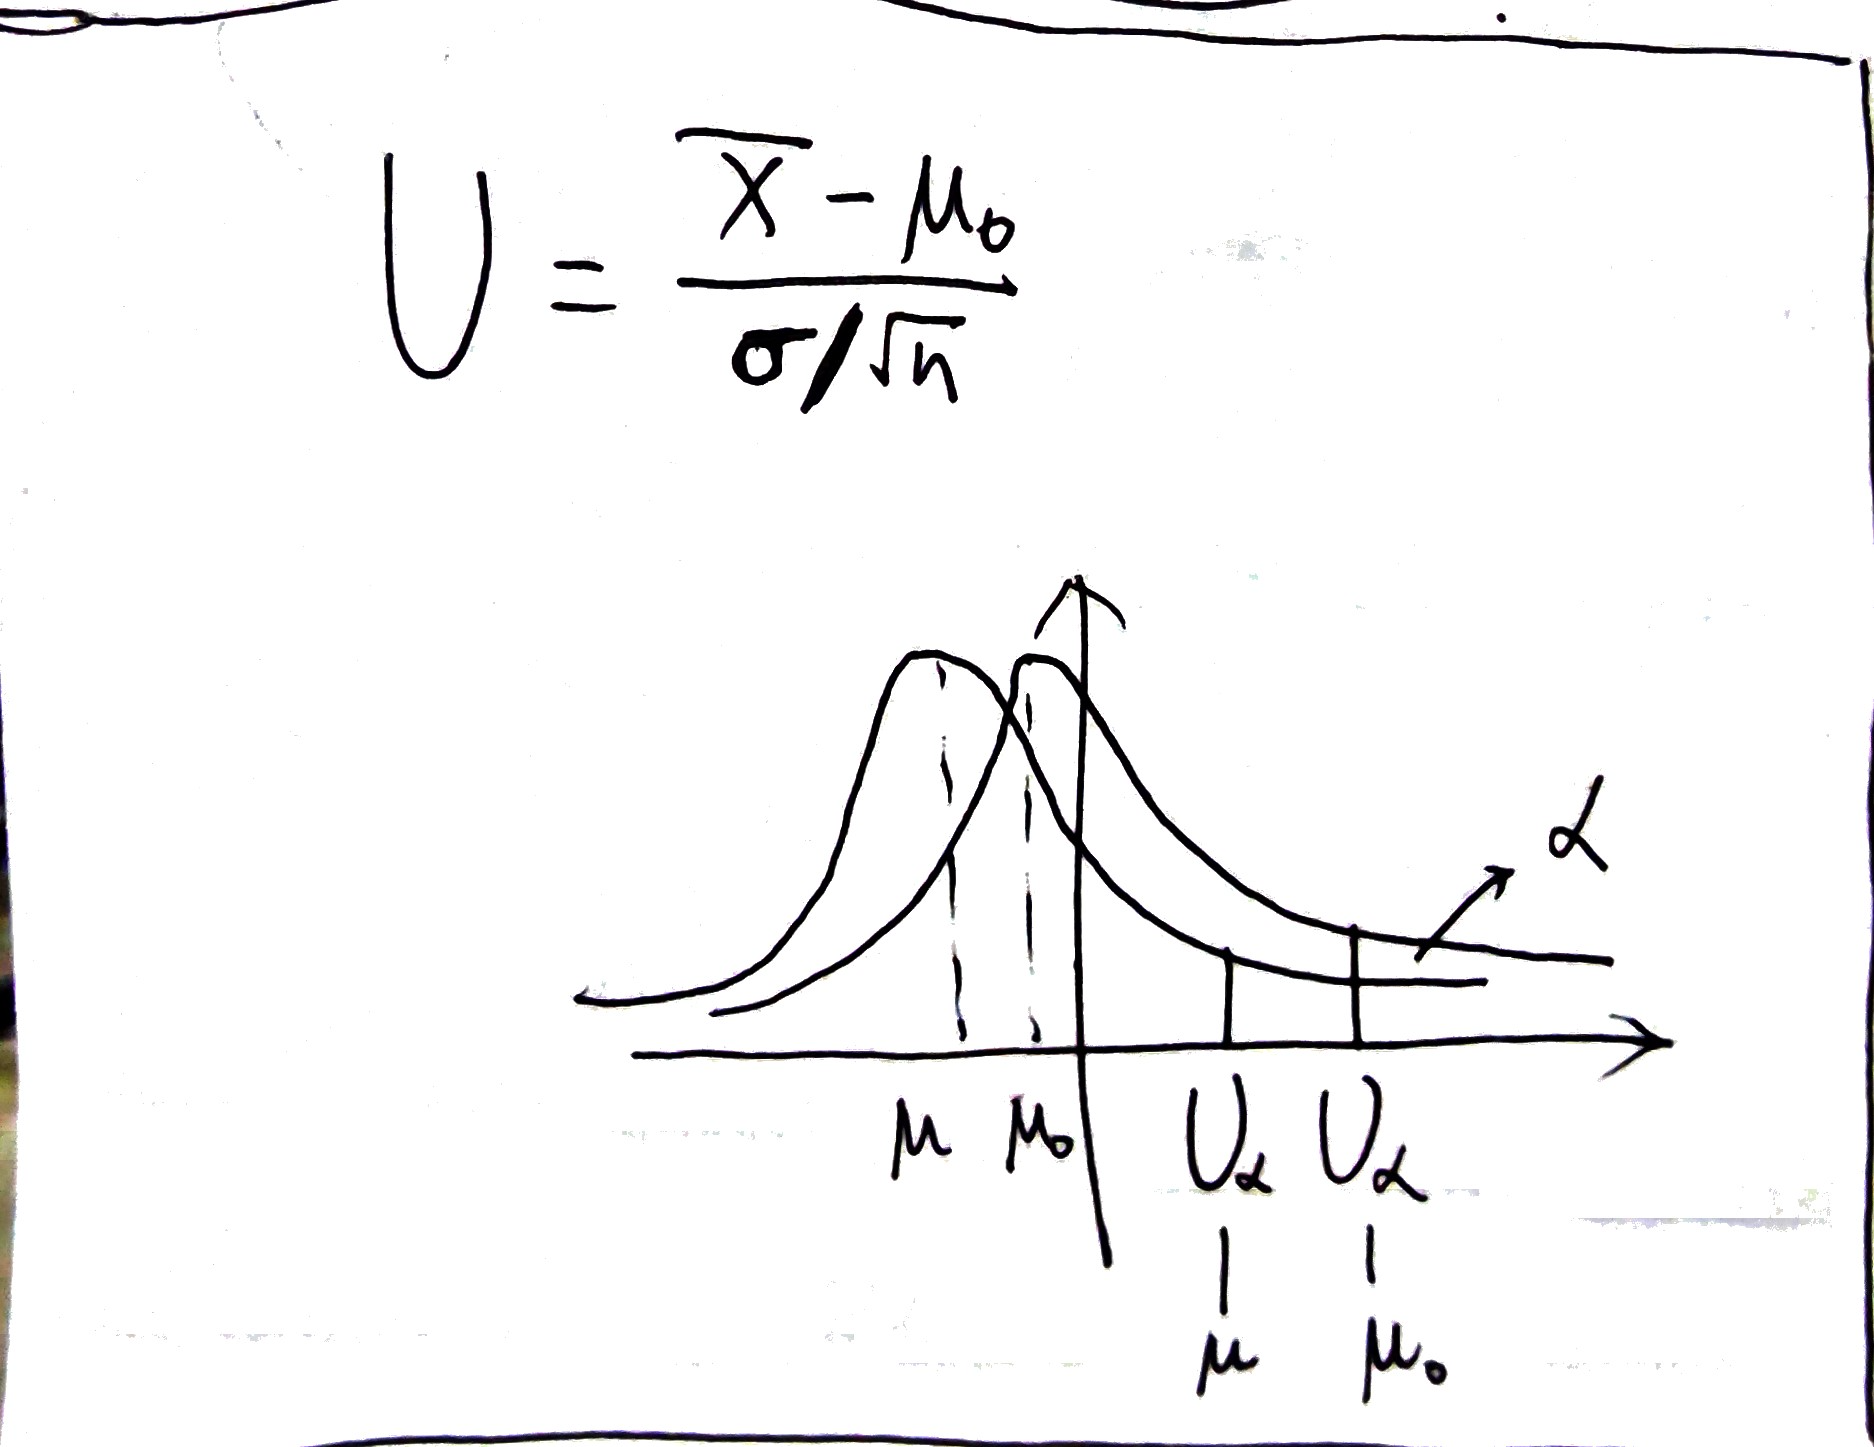 U = X̄ - μ₀
σ/√n
α
μ μ₀ Uα Uα
μ μ₀